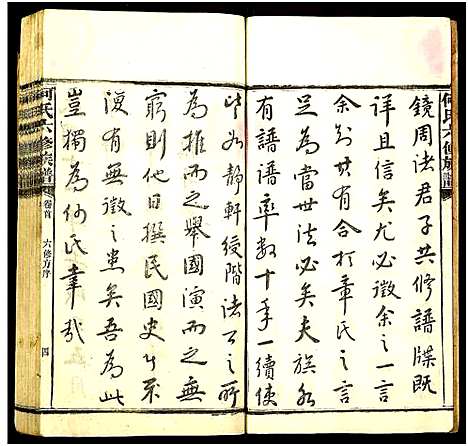 何氏六修族譜
鏡周法君子共修譜牒既
詳且信矣尤必徵余之一言
余則世有合於章氏之言
足為當世法必矣夫族各
有譜譜率數十年一續使
皆如靜軒綬階法公之所
為推而之舉國演而之無
窮則他日撰民國史者不
復有無徵之患矣吾為此
豈獨為何氏幸哉
何氏六修族譜
卷首
六修方序
四